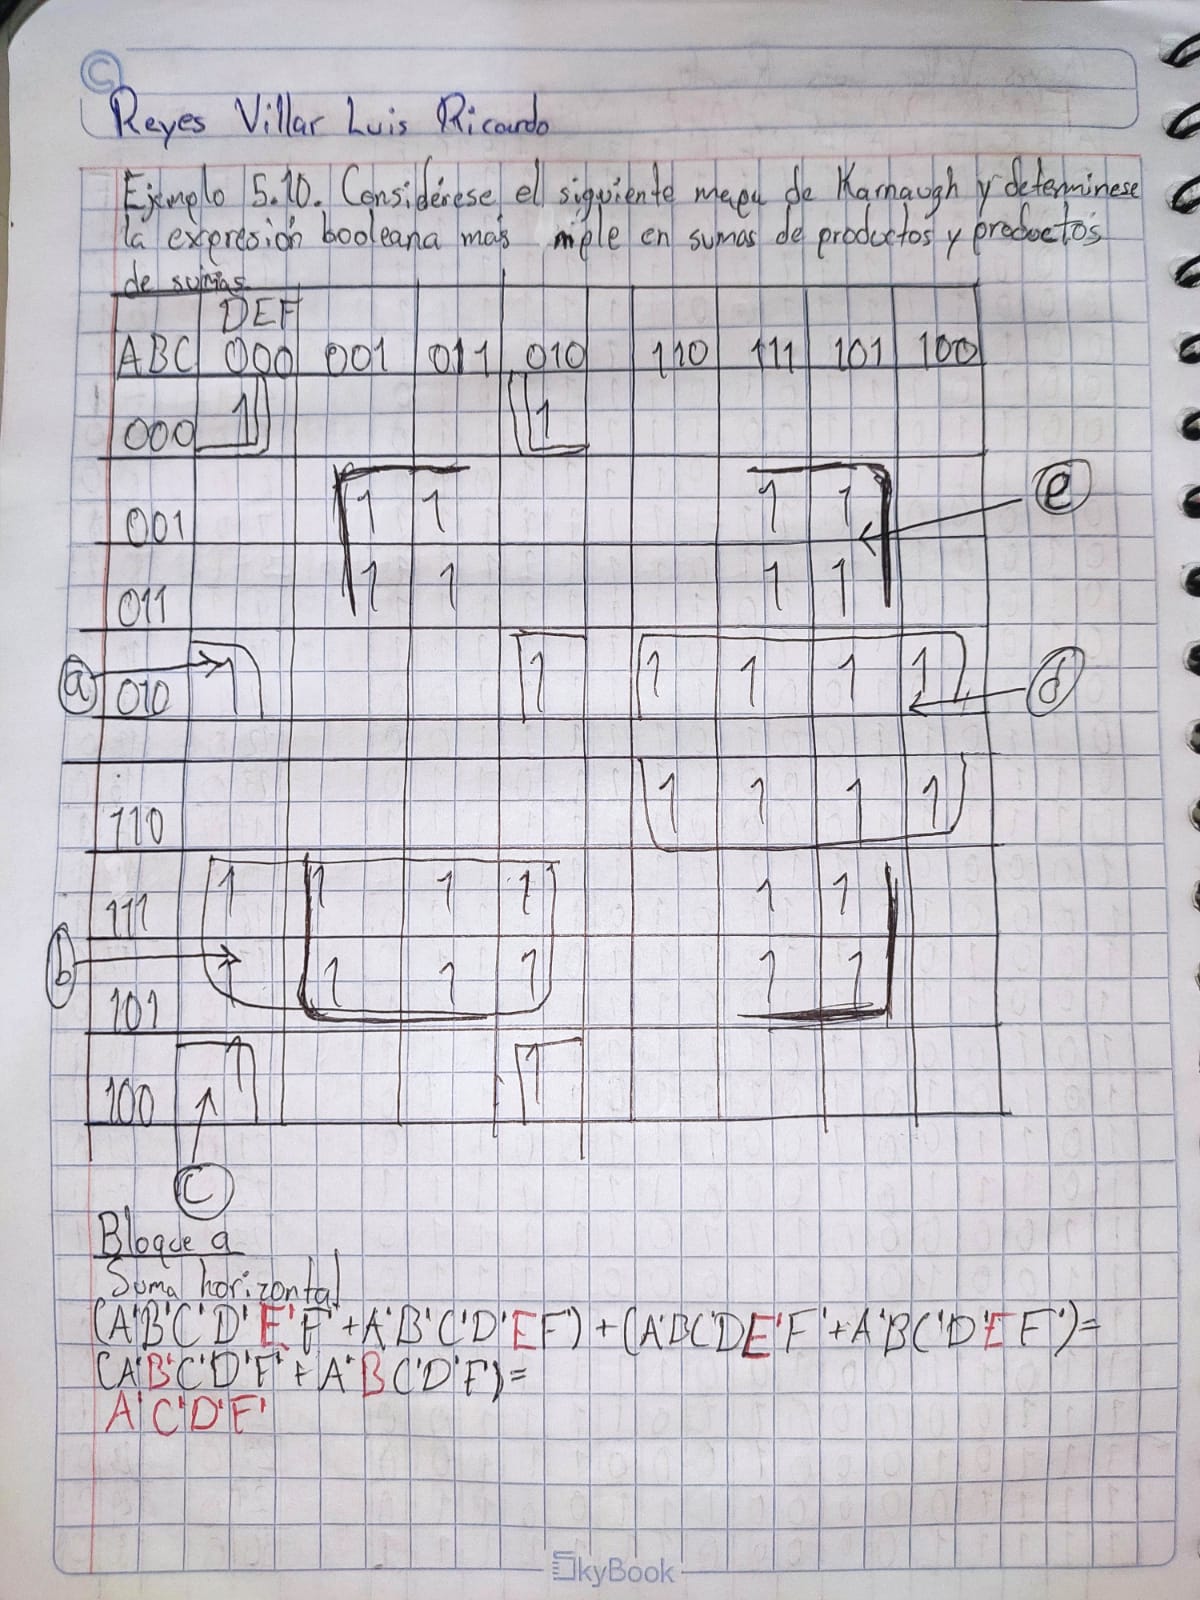 ©
Reyes Villar Luis Ricardo
Ejemplo 5.10. Considérese el siguiente mapa de Karnaugh y determinese
la expresión booleana más mple en sumas de productos y productos
de sumas
DEF
ABC 000 001 011 010 110 111 101 100
000 1 1
001 1 1 1 1 e
011 1 1 1 1
a 010 1 1 1 1 1 1 d
110 1 1 1 1
111 1 1 1 1 1 1
b 101 1 1 1 1 1 1
100 1 1
C
Bloque a
Suma horizontal
(A'B'C'D'E'F'+A'B'C'D'EF)+(A'BC'DE'F'+A'BC'D'EF')=
(A'B'C'D'F'+A'BC'D'F)=
A'C'D'F'
SkyBook